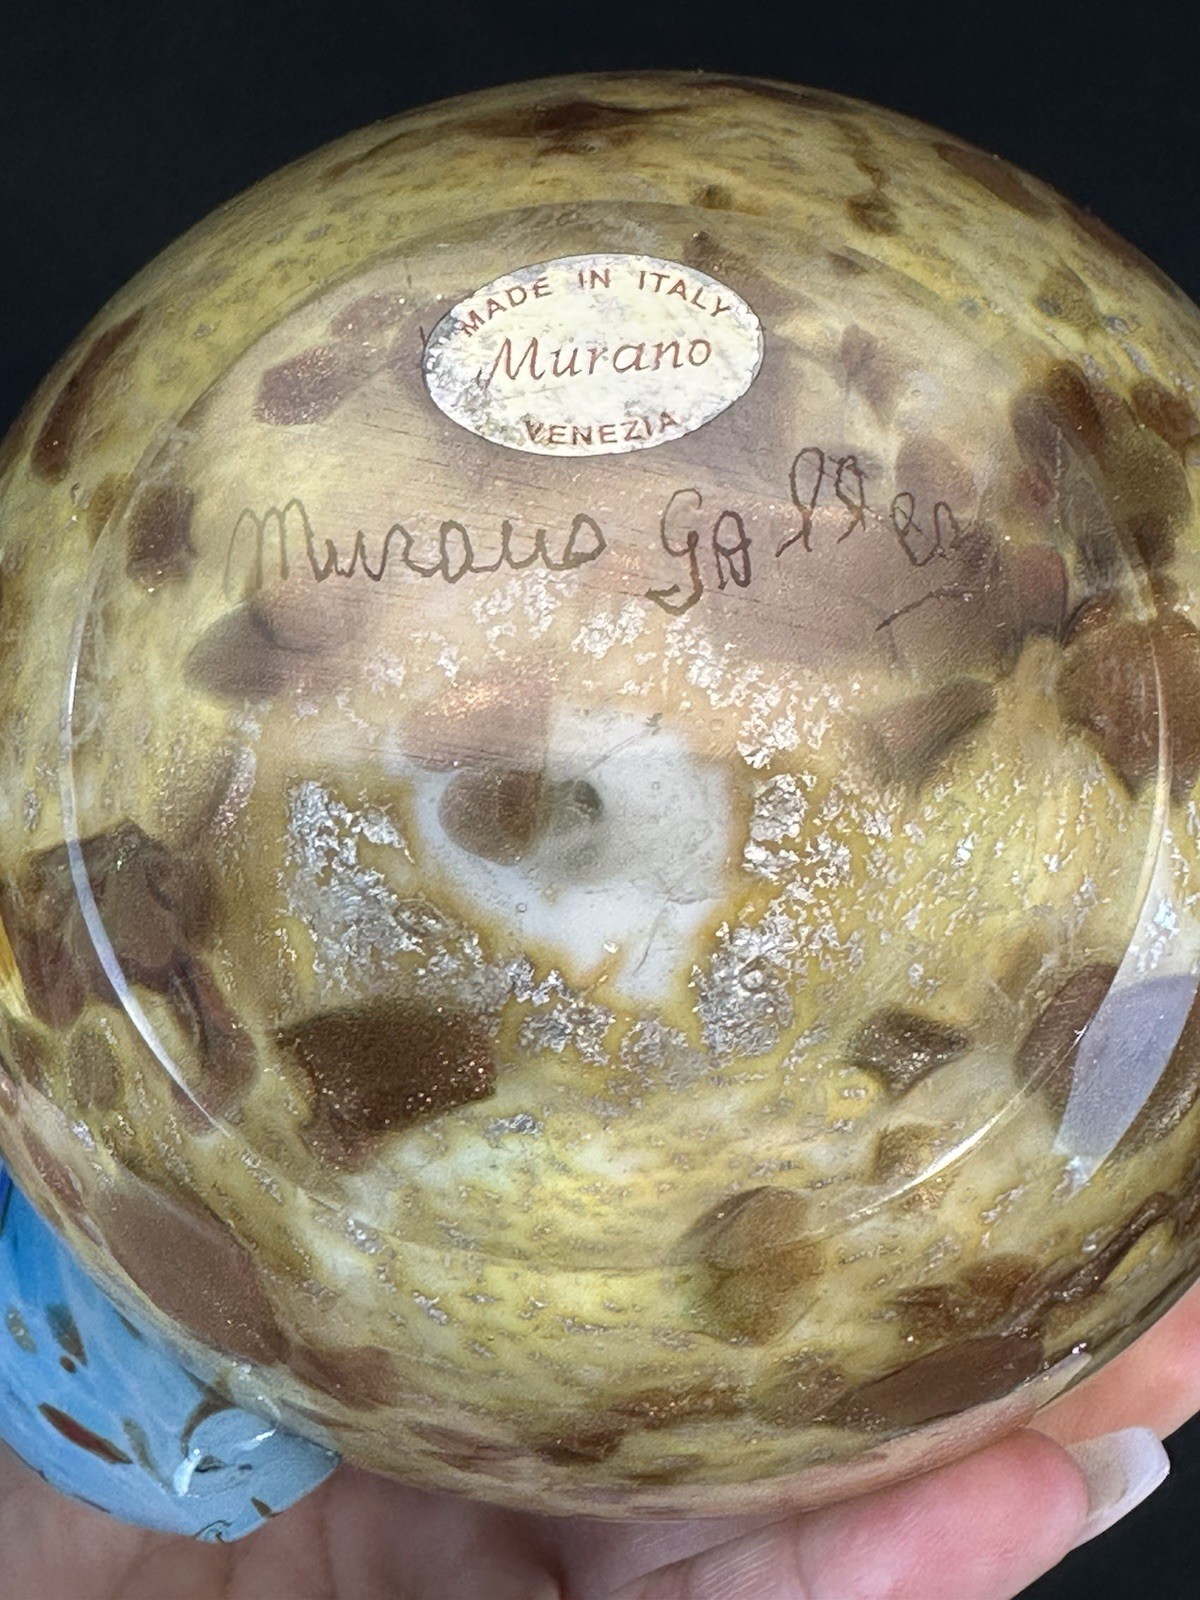 MADE IN ITALY
Murano
VENEZIA
Murano